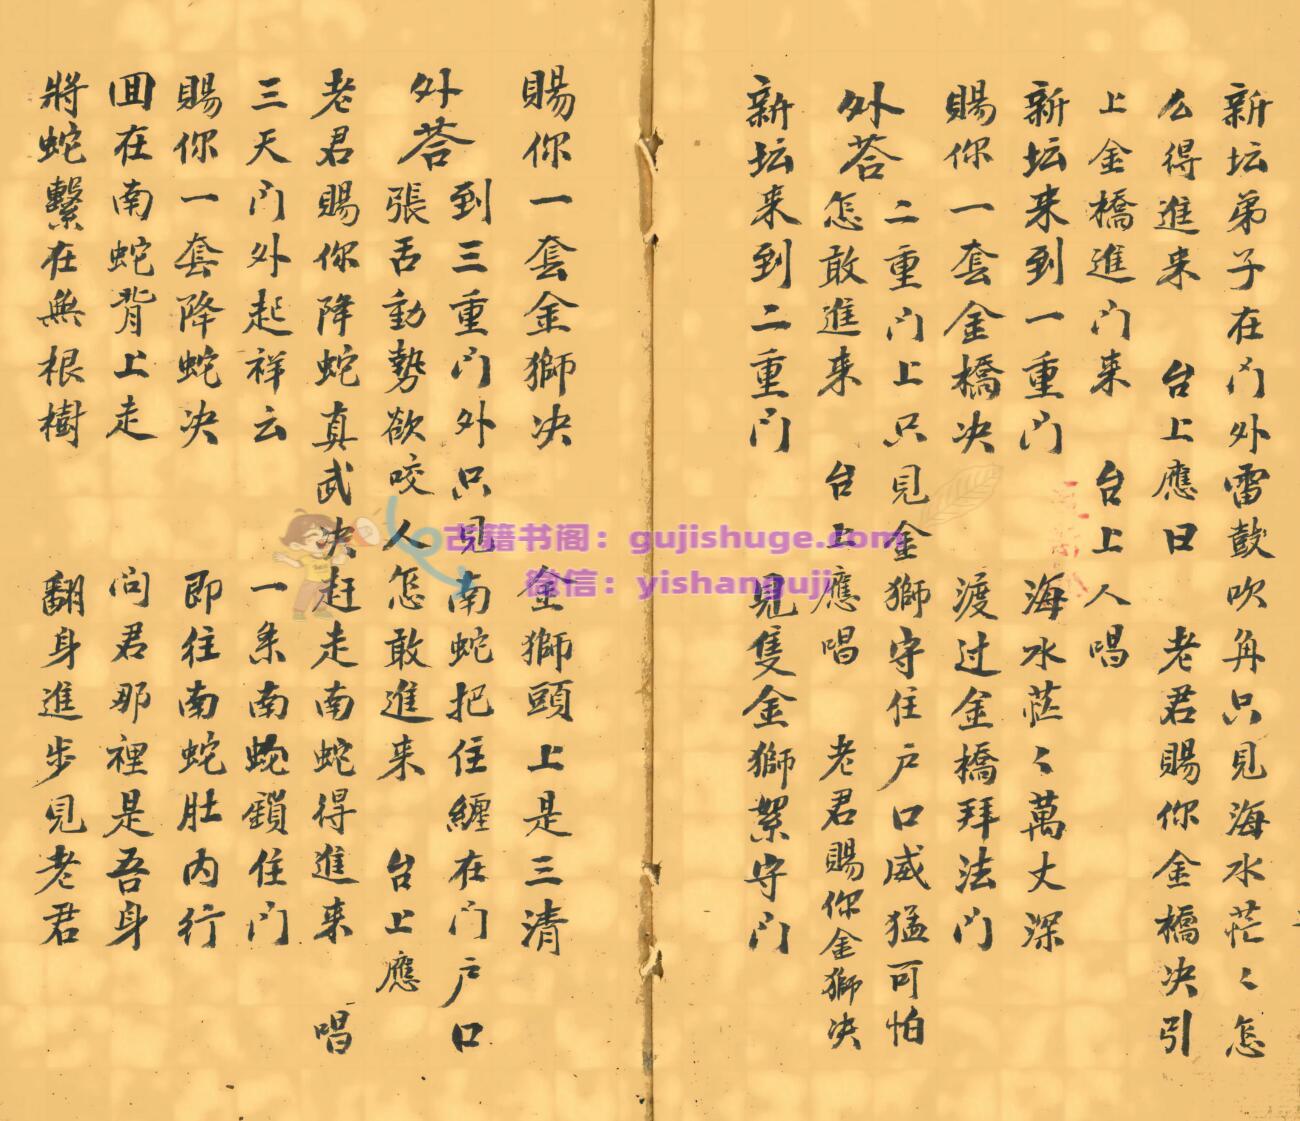 新坛弟子在门外雷鼓吹角只見海水茫〻怎
么得進来 台上應曰 老君賜你金橋决引
上金橋進门来 台上人唱
新坛来到一重门 海水茫〻萬丈深
賜你一套金橋决 渡过金橋拜法门
外荅 二重门上只見金獅守住户口威猛可怕
怎敢進来 台上應唱 老君賜你金獅决
新坛来到二重门 見隻金獅絮守门
賜你一套金獅决 金獅頭上是三清
外荅 到三重门外只見南蛇把住纏在门户口
張舌動勢欲咬人怎敢進来 台上應
老君賜你降蛇真武决赶走南蛇得進来 唱
三天门外起祥云 一条南蛇鎖住门
賜你一套降蛇决 即往南蛇肚内行
回在南蛇背上走 问君那裡是吾身
將蛇繫在無根樹 翻身進步見老君
古籍书阁：gujishuge.com
微信：yishanguji